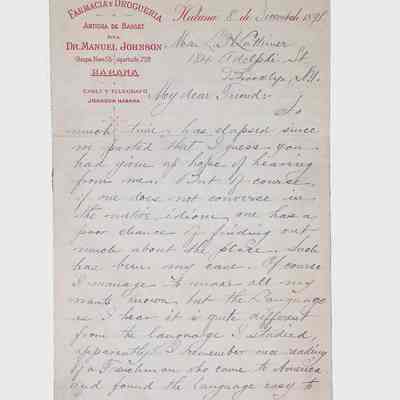 FARMACIA Y DROGUERIA
ANTIGUA DE BASSET
DEL
DR. MANUEL JOHNSON
Obispo Num. 53 - Apartado 750
HABANA
CABLE Y TELEGRAFO
JOHNSON HABANA
Habana, 8 de 189
Mrs L. H. Latimer
Adelphi St.
Brooklyn, N.Y.
My dear Friend:
So
much time has elapsed since
we parted that I guess you
had given up hope of hearing
from me. But of course
if one does not converse in
the native idiom, one has a
poor chance of finding out
much about the place. Such
has been my case. Of course
I manage to make all my
wants known but the language
as I hear it is quite different
from the language I studied,
apparently. I remember once reading
of a Frenchman who came to America
and found the language easy to